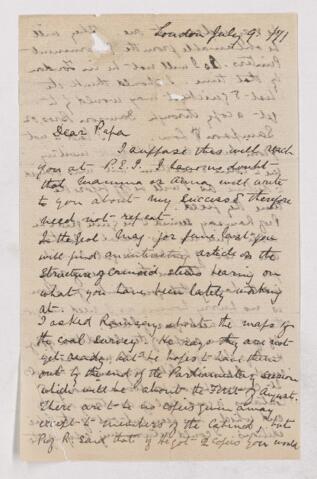 London July 9th /71
Dear Papa
I suppose this will reach
you at P.E.I. I have no doubt
that Mamma or Anna will write
to you about my success & therefore
need not repeat.
In the Geol Mag for June last you
will find an interesting article on the
structure of crinoid stems bearing on
what you have been lately working
at.
I asked Ramsay about the maps of
the coal survey. He says they are not
yet ready but he hopes to have them
out by the end of the Parliamentary session
which will be about the first of August.
There are to be no copies given away
except to members of the Cabinet, but
Prof R. said that if he got 2 copies you would